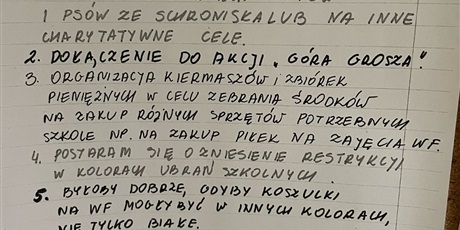 I PSÓW ZE SCHRONISKA LUB NA INNE
CHARYTATYWNE CELE.
2. DOŁĄCZENIE DO AKCJI „GÓRA GROSZA".
3. ORGANIZACJA KIERMASZÓW I ZBIÓREK
PIENIĘŻNYCH W CELU ZEBRANIA ŚRODKÓW
NA ZAKUP RÓŻNYCH SPRZĘTÓW POTRZEBNYCH
SZKOLE NP. NA ZAKUP PIŁEK NA ZAJĘCIA WF.
4. POSTARAM SIĘ O ZNIESIENIE RESTRYKCJI
W KOLORACH UBRAŃ SZKOLNYCH.
5. BYŁOBY DOBRZE, GDYBY KOSZULKI
NA WF MOGŁY BYĆ W INNYCH KOLORACH,
NIE TYLKO BIAŁE.